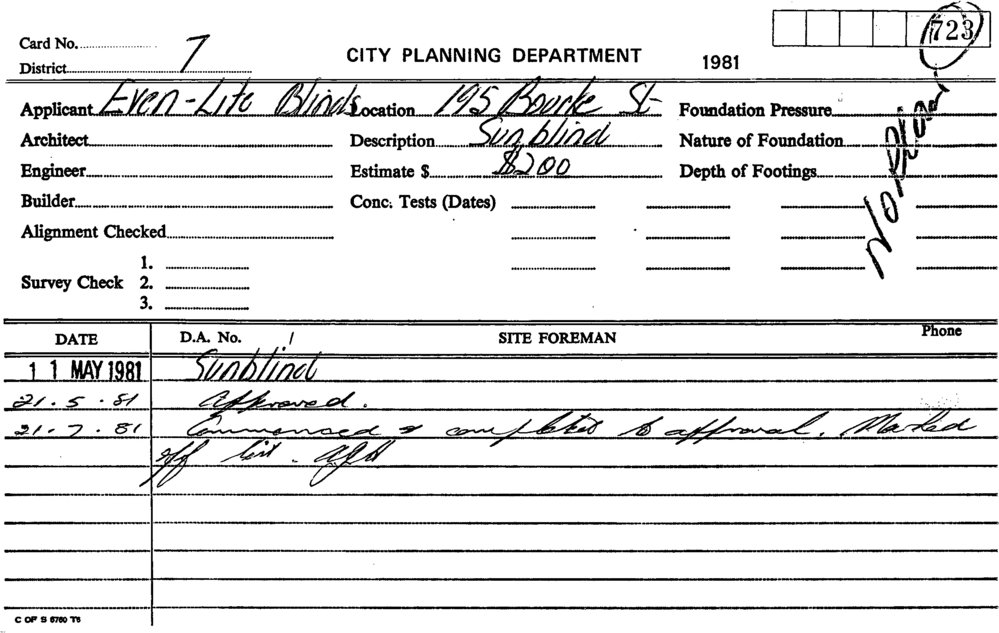 723
Card No.
District 7
CITY PLANNING DEPARTMENT 1981
Applicant Even-Lite Blinds Location 195 Bourke St Foundation Pressure
No Plan
Architect Description Sunblind Nature of Foundation
Engineer Estimate $ $200 Depth of Footings
Builder Conc. Tests (Dates)
Alignment Checked
1.
Survey Check 2.
3.
DATE D.A. No. / SITE FOREMAN Phone
11 MAY 1981 Sunblind
21.5.81 Approved.
21.7.81 Commenced & completed to approval. Marked
off list.
C OF S 6760 T6